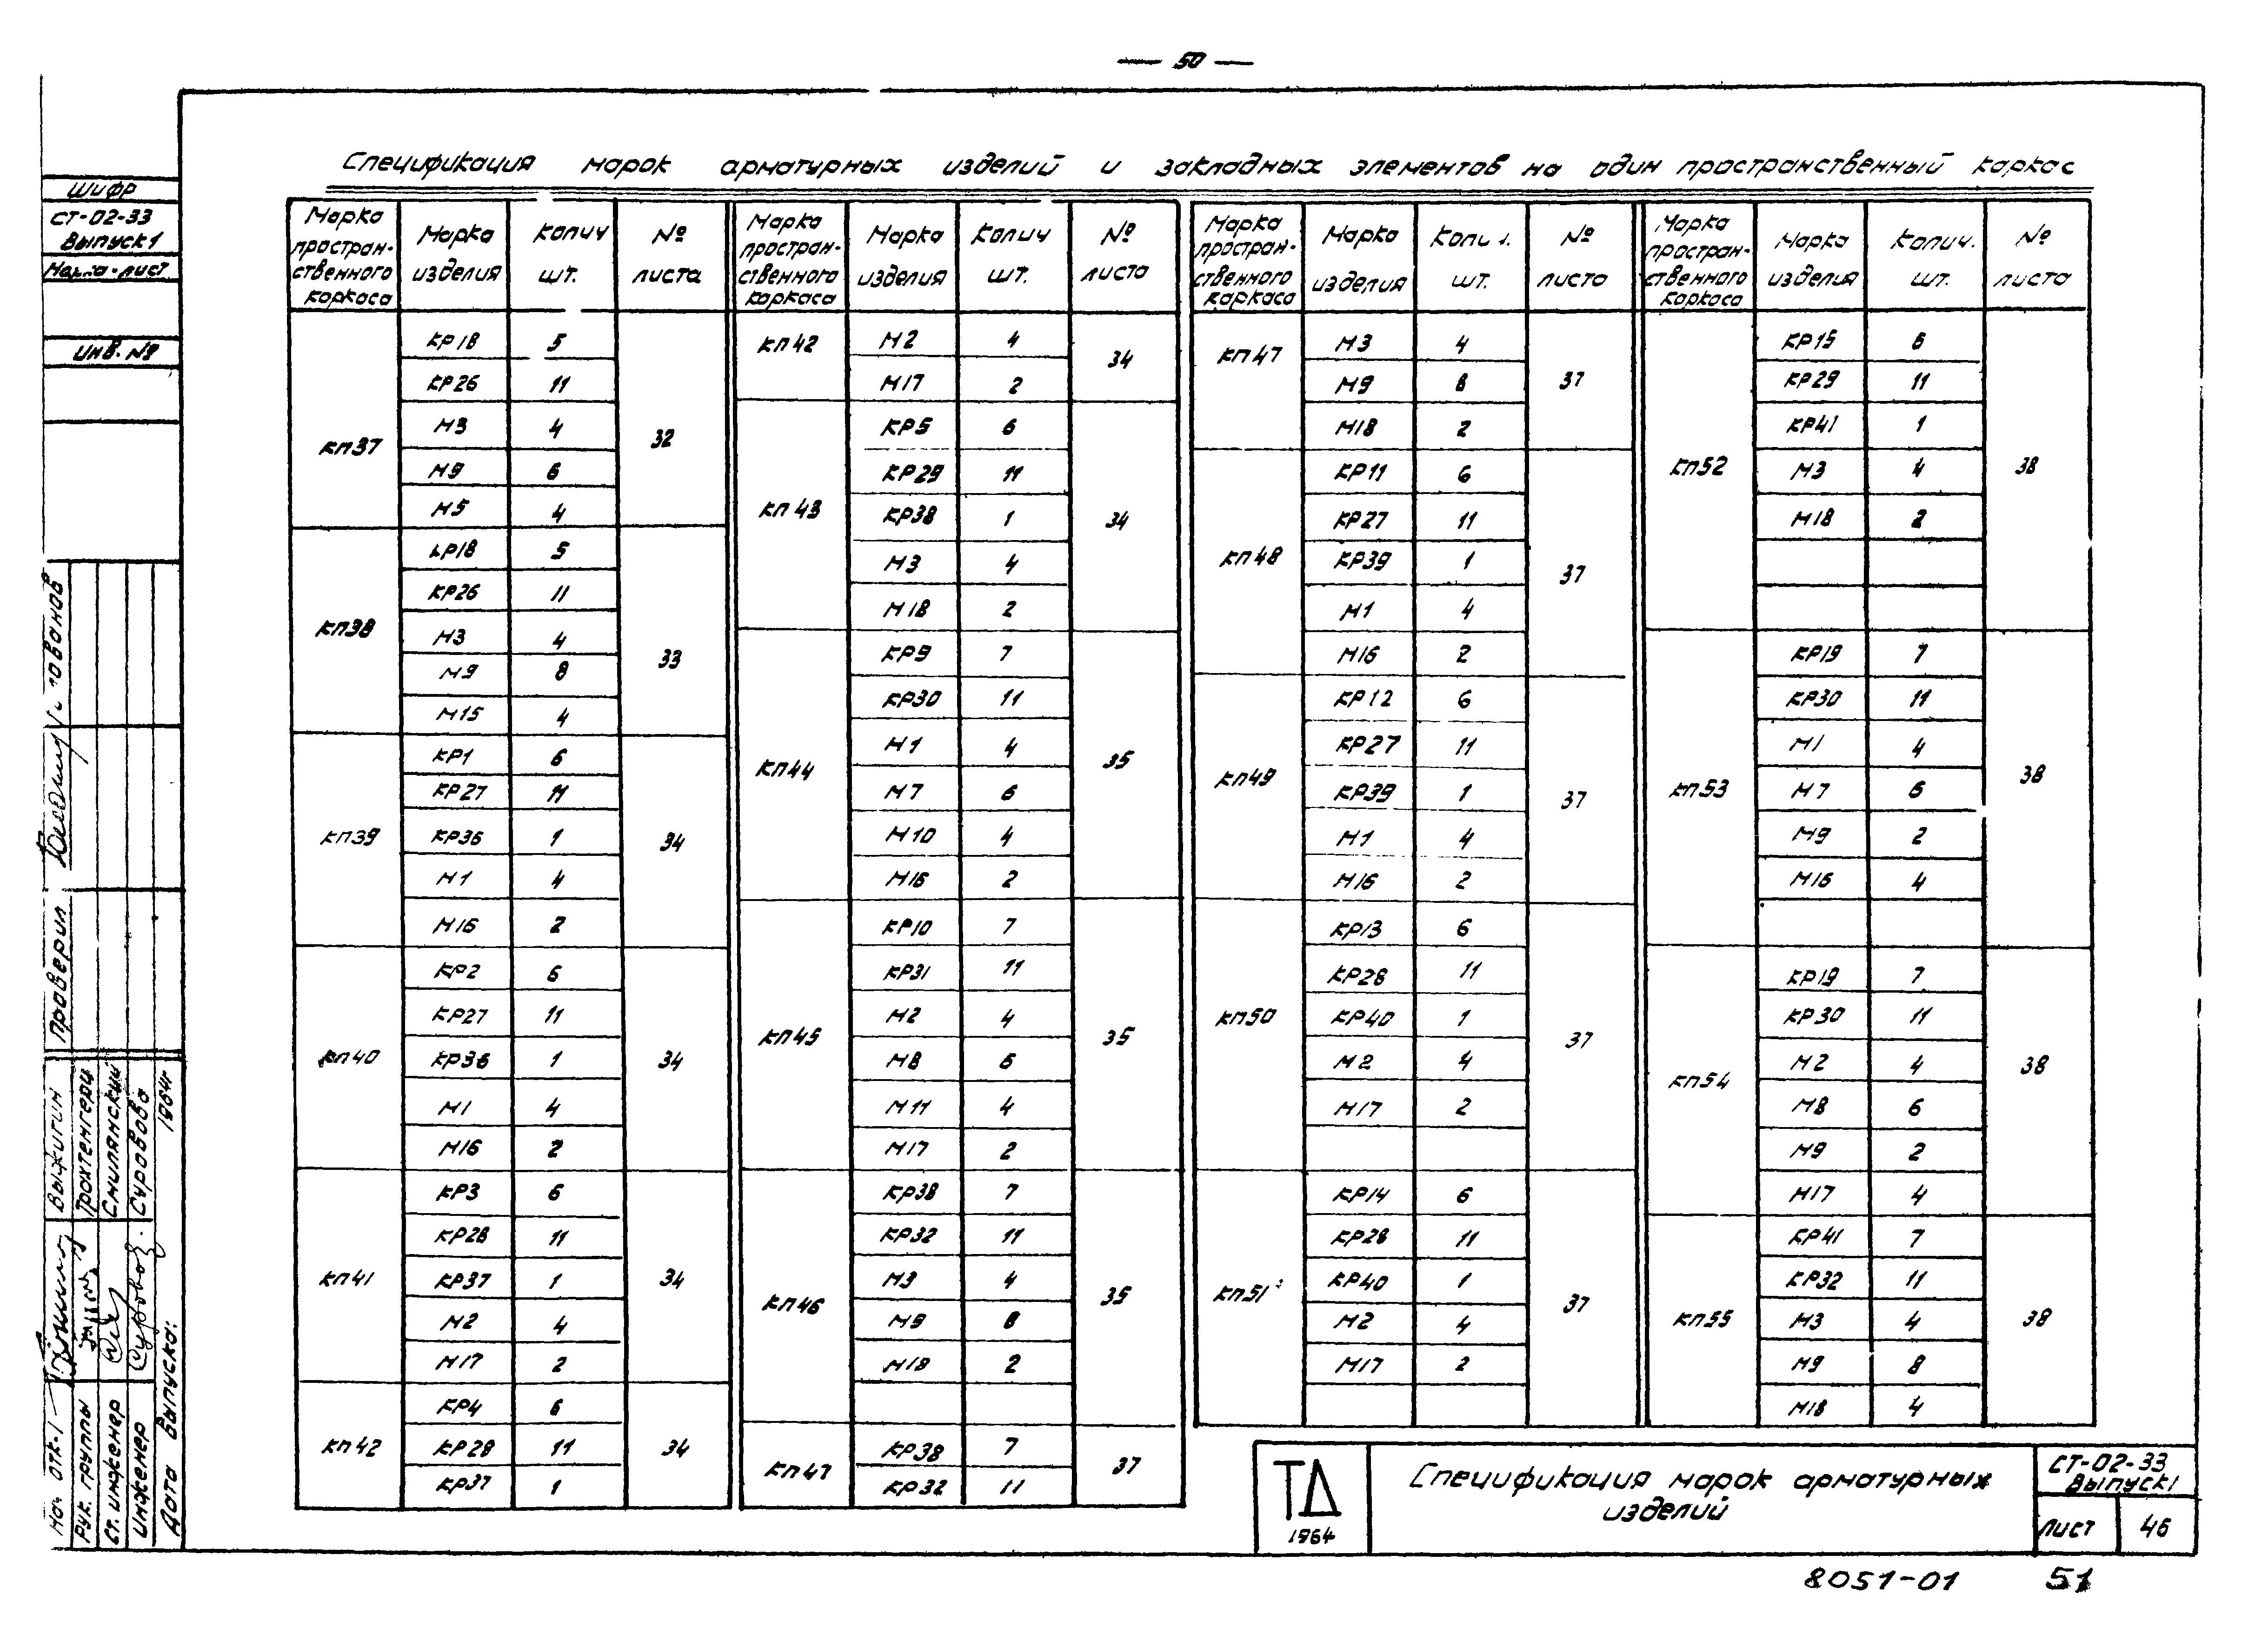 — 50 —
Спецификация марок арматурных изделий и закладных элементов на один пространственный каркас
Марка пространственного каркаса | Марка изделия | Колич шт. | № листа
КП37 | КР18 | 5 | 32
КР26 | 11
М3 | 4
М9 | 6
М5 | 4
КП38 | КР18 | 5 | 33
КР26 | 11
М3 | 4
М9 | 8
М15 | 4
КП39 | КР1 | 6 | 34
КР27 | 11
КР36 | 1
М1 | 4
М16 | 2
КП40 | КР2 | 6 | 34
КР27 | 11
КР36 | 1
М1 | 4
М16 | 2
КП41 | КР3 | 6 | 34
КР28 | 11
КР37 | 1
М2 | 4
М17 | 2
КП42 | КР4 | 6 | 34
КР28 | 11
КР37 | 1
Марка пространственного каркаса | Марка изделия | Колич шт. | № листа
КП42 | М2 | 4 | 34
М17 | 2
КП43 | КР5 | 6 | 34
КР29 | 11
КР38 | 1
М3 | 4
М18 | 2
КП44 | КР9 | 7 | 35
КР30 | 11
М1 | 4
М7 | 6
М10 | 4
М16 | 2
КП45 | КР10 | 7 | 35
КР31 | 11
М2 | 4
М8 | 6
М11 | 4
М17 | 2
КП46 | КР38 | 7 | 35
КР32 | 11
М3 | 4
М9 | 8
М18 | 2
КП47 | КР38 | 7 | 37
КР32 | 11
Марка пространственного каркаса | Марка изделия | Колич. шт. | № листа
КП47 | М3 | 4 | 37
М9 | 8
М18 | 2
КП48 | КР11 | 6 | 37
КР27 | 11
КР39 | 1
М1 | 4
М16 | 2
КП49 | КР12 | 6 | 37
КР27 | 11
КР39 | 1
М1 | 4
М16 | 2
КП50 | КР13 | 6 | 37
КР28 | 11
КР40 | 1
М2 | 4
М17 | 2
КП51 | КР14 | 6 | 37
КР28 | 11
КР40 | 1
М2 | 4
М17 | 2
Марка пространственного каркаса | Марка изделия | Колич. шт. | № листа
КП52 | КР15 | 6 | 38
КР29 | 11
КР41 | 1
М3 | 4
М18 | 2
КП53 | КР19 | 7 | 38
КР30 | 11
М1 | 4
М7 | 6
М9 | 2
М16 | 4
КП54 | КР19 | 7 | 38
КР30 | 11
М2 | 4
М8 | 6
М9 | 2
М17 | 4
КП55 | КР41 | 7 | 38
КР32 | 11
М3 | 4
М9 | 8
М18 | 4
ТД
1964
Спецификация марок арматурных
изделий
СТ-02-33
Выпуск 1
Лист 46
8051-01 51
Шифр
СТ-02-33
Выпуск 1
Марка-лист
Инв. №
Проверил
Нач ОТК-1 Выжигин
Рук. группы
Ст. инженер Смилянский
Инженер Суровова
Дата выпуска: 1964г